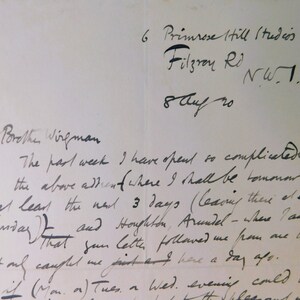 6 Primrose Hill Studios
Fitzroy Rd
N.W.1.
8 Aug 20
Brother Wingman
The past week I have spent so complicated
the above address (where I shall be tomorrow
at least the next 3 days (leaving there at
and Houghton, Arundel – where I a
That your letter followed me from one
only caught me just a I here a day ago.
if (Mon. or) Tues. or Wed. evening could